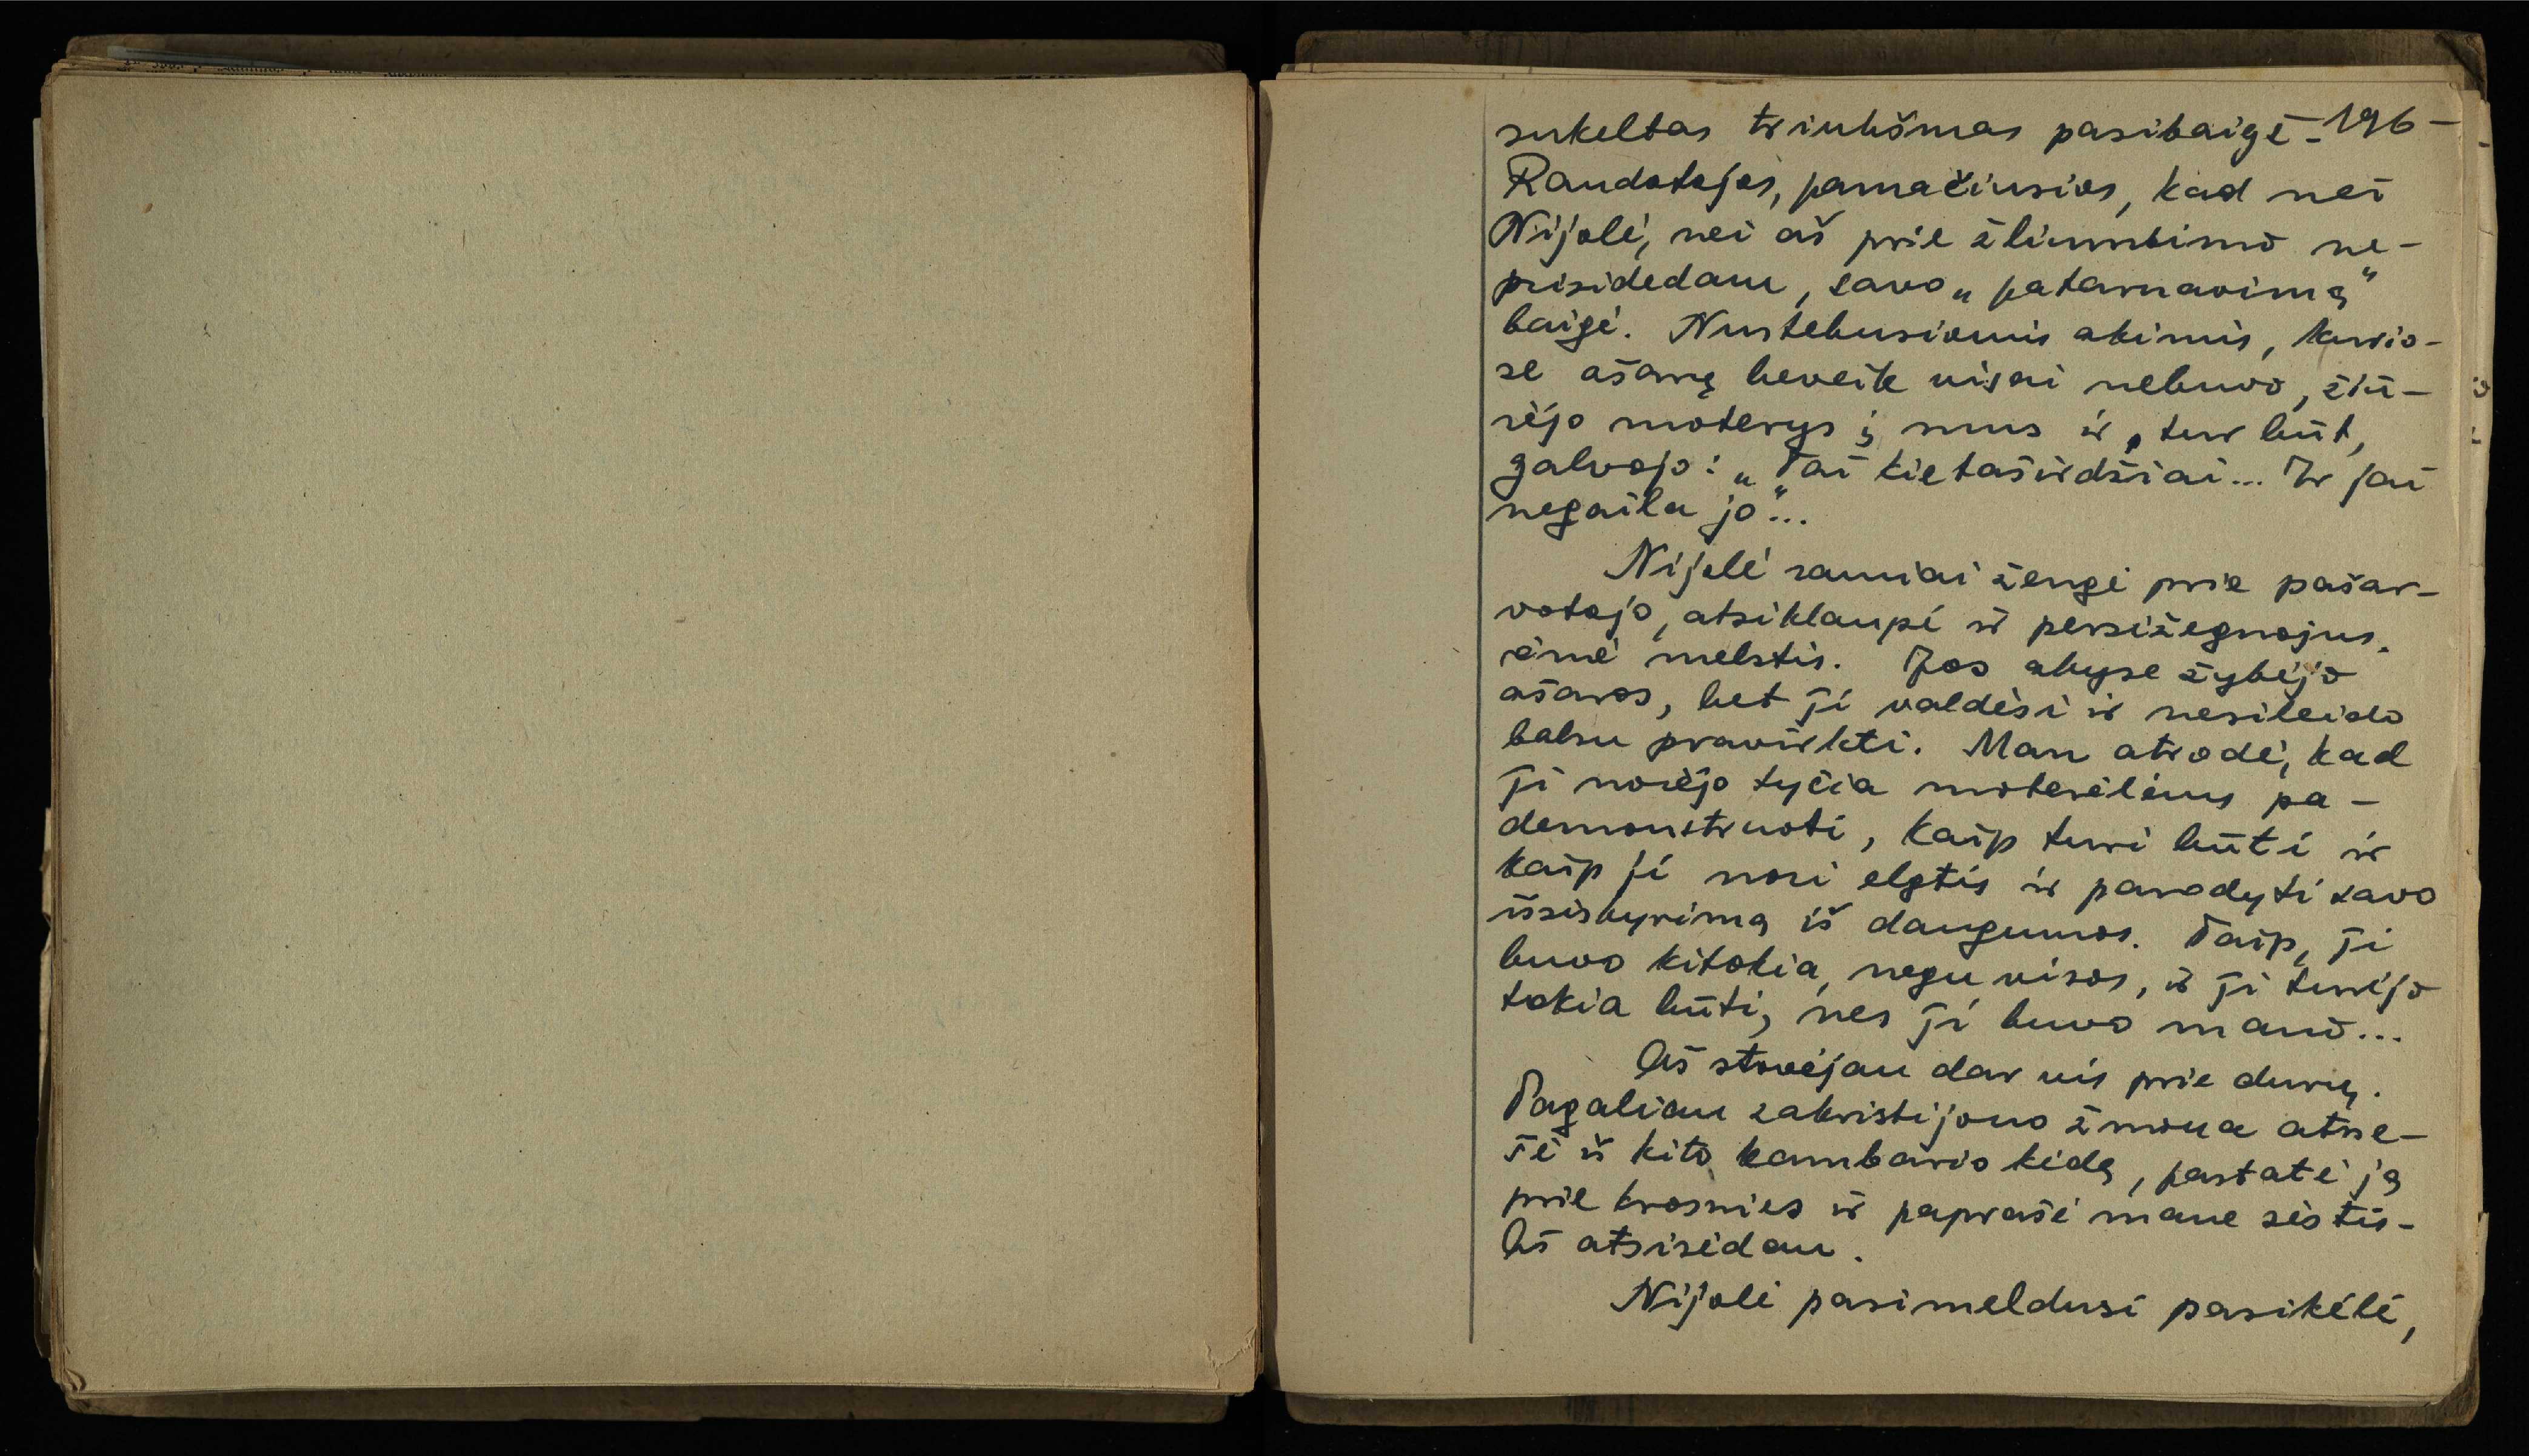 sukeltas triukšmas pasibaigė. -196-
Raudotojos, pamačiusios, kad nei
Nijolė, nei aš prie žliumbimo ne-
prisidedam, savo „patarnavimą"
baigė. Nustebusiomis akimis, kurio-
se ašarų beveik visai nebuvo, žiū-
rėjo moterys į mus ir, tur būt,
galvojo: „Tai kietaširdžiai... Ir jai
negaila jo"...
Nijolė ramiai žengė prie pašar-
votojo, atsiklaupė ir persižegnojus,
ėmė melstis. Jos akyse žybėjo
ašaros, bet ji valdėsi ir nesileido
balsu pravirkti. Man atrodė, kad
ji norėjo tyčia moterėlėms pa-
demonstruoti, kaip turi būti ir
kaip ji nori elgtis ir parodyti savo
išsiskyrimą iš daugumos. Taip, ji
buvo kitokia, negu visos, ir ji turėjo
tokia būti, nes ji buvo mano...
Aš stovėjau dar vis prie durų.
Pagaliau zakristijono žmona atne-
šė iš kito kambario kėdę, pastatė ją
prie krosnies ir paprašė mane sėstis.
Aš atsisėdau.
Nijolė pasimeldusi pasikėlė,